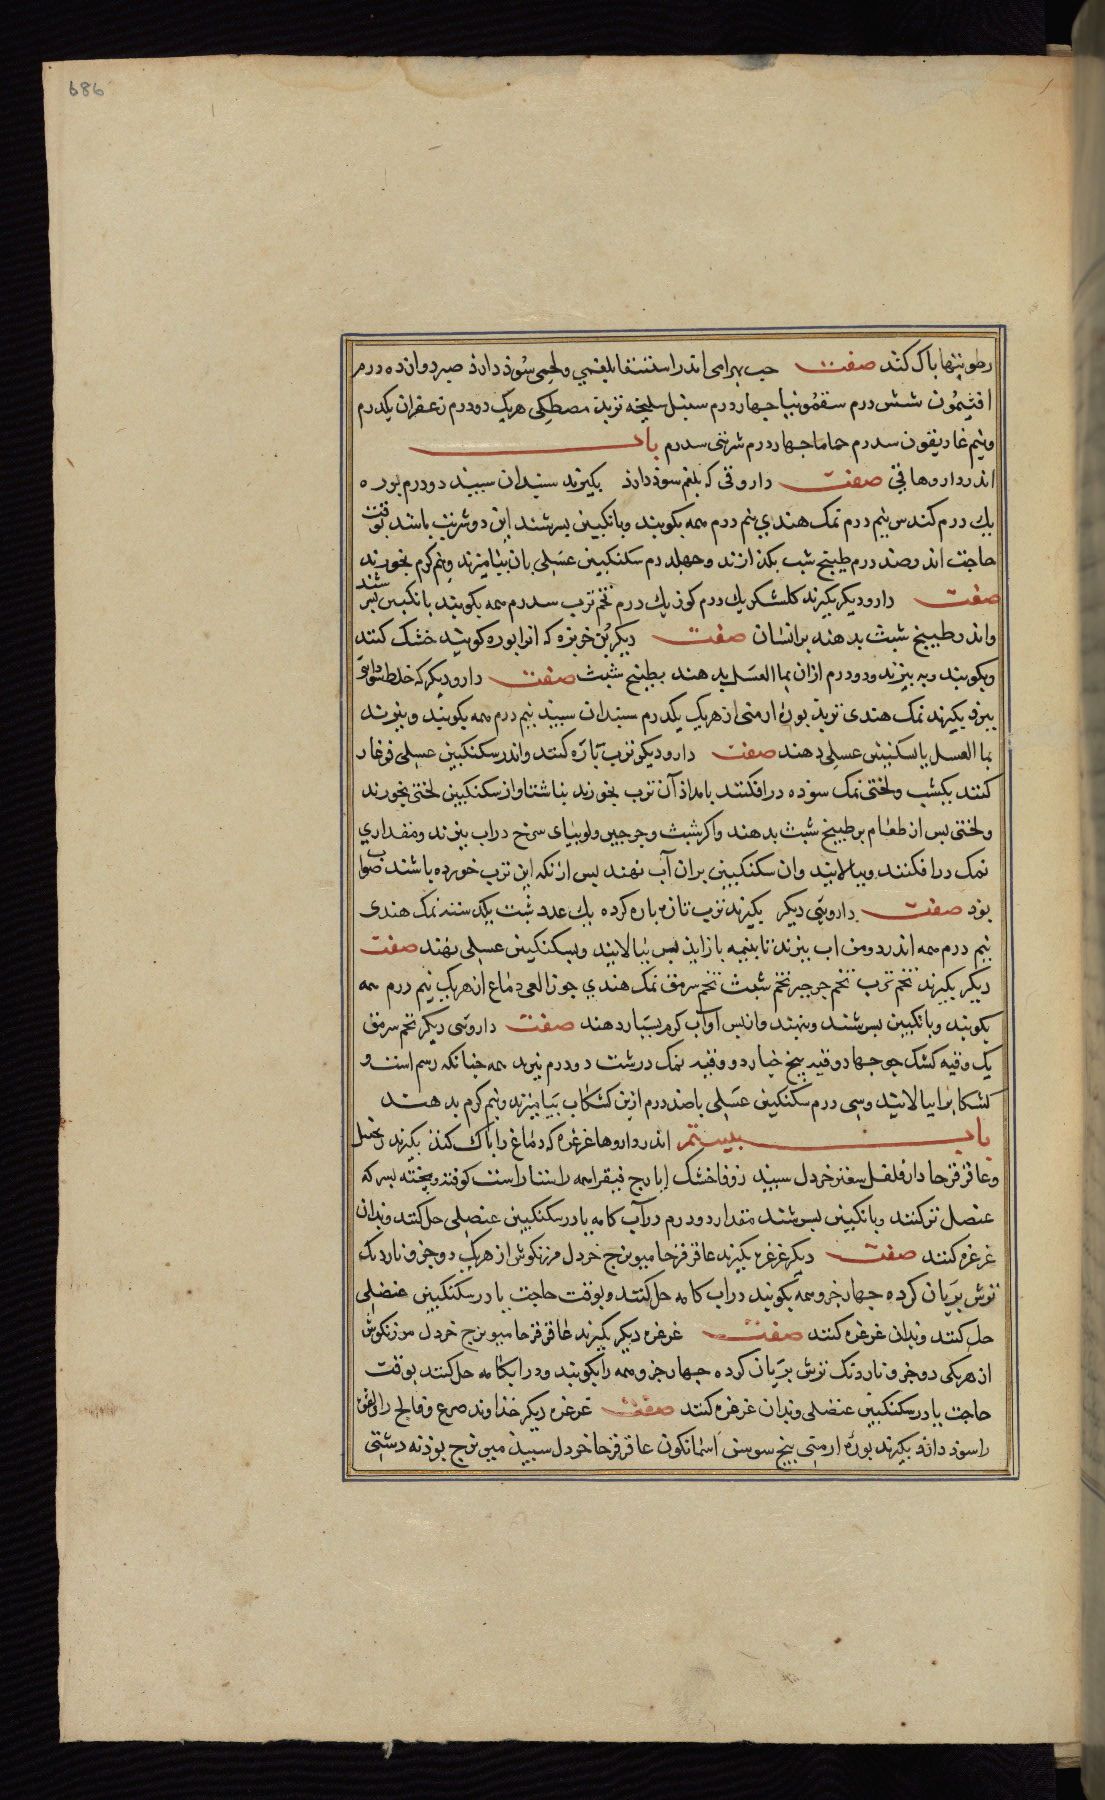 686
رطوبتها باک کند صفت حب بهرامی اندر استسقا بلغمی ولحمی سوذ دارذ صبر دوازده درم
افتیمون شش درم سقمونیا جهاردرم سنبل سلیخه تربذ مصطکی هریک دودرم زعفران یکدرم
ونیم غاریقون سدرم حماما جهاردرم شربتی سدرم باب
اندر داروها قی صفت داروقی که بلغم سوذ دارذ بکیرند سبندان سبید دودرم بوره
یک درم کندس نیم درم نمک هندی نیم درم همه بکوبند وبانکبین بسرشند این دو شربت باشد بوقت
حاجت اندر صذ درم طبیخ شبت بکذارند وجهلدرم سکنکبین عسلی بان بیامیزند ونیم کرم بخورند
صفت دارو دیکر بکیرند کلشکر یک درم کوز یک درم تخم ترب سدرم همه بکوبند بانکبین بسرشند
واندر طبیخ شبث بدهند برانسان صفت دیکر بن خربزه که انرا بوره کویند خشک کنند
وبکوبند وبه بیزند ودودرم ازان بماالعسل بدهند بطبیخ شبث صفت دارو دیکر که خلط سوداوی
ببرد بکیرند نمک هندی تربذ بوره ارمنی از هریک یکدرم سبندان سبید نیم درم همه بکوبند وببزند
بماالعسل یا سکنبین عسلی دهند صفت دارو دیکر ترب باره کنند واندر سکنکبین عسلی فرغار
کنند یکشب ولختی نمک سوذه درافکنند بامداذ آن ترب بخورند بناشتا واز سکنکبین لختی بخورند
ولختی بس از طعام بر طبیخ شبث بدهند واکر شبث وجرجیر ولوبیای سرخ دراب ببزند ومقداری
نمک درافکنند وببالایند وان سکنکبین بران آب نهند بس ازنکه این ترب خورده باشند صواب
بوذ صفت داروئی دیکر بکیرند ترب تازه باره کرده یک عدد شبت یکدسته نمک هندی
نیم درم همه اندر دومن اب ببزند تا بنیمه بازاید بس ببالایند وبسکنکبین عسلی نهند صفت
دیکر بکیرند تخم ترب تخم جرجیر تخم شبث تخم سرمق نمک هندی جوزالقی دماغ از هریک نیم درم همه
بکوبند وبانکبین بسرشند وبنهند وازبس آواب کرم بسیار دهند صفت داروئی دیکر تخم سرمق
یک وقیه کشک جو جهاروقیه بیخ خیار دووقیه نمک درشت دودرم ببزند همه جنانکه رسم است و
کشکاب را ببالایند وسی درم سکنکبین عسلی باصذ درم ازین کشکاب بیامیزند ونیم کرم بدهند
باب بیستم اندر داروها غرغره که دماغ را باک کنذ بکیرند زنجبیل
وعاقرقرحا دارفلفل سعتر خردل سبید زوفا خشک ایارج فیقرا همه راستا راست کوفته وبیخته بسرکه
عنصل ترکنند وبانکبین بسرشند مقدار دودرم درآب کامه یا در سکنکبین عنصلی حل کنند وبدان
غرغره کنند صفت دیکر غرغره بکیرند عاقرقرحا میویزج خردل مرزنکوش از هریک دوجزو ناردنک
ترش بریان کرده جهارجزو همه بکوبند دراب کامه حل کنند وبوقت حاجت یا در سکنکبین عنصلی
حل کنند وبدان غرغره کنند صفت غرغره دیکر بکیرند عاقرقرحا میویزج خردل مرزنکوش
از هریکی دوجزو ناردنک ترش بریان کرده جهارجزو همه را بکوبند ودر ابکامه حل کنند بوقت
حاجت یا در سکنکبین عنصلی وبدان غرغره کنند صفت غرغره دیکر خذاوند صرع وفالج را ولقوه
را سوذ دارد بکیرند بوره ارمنی بیخ سوسن اسمانکون عاقرقرحا خردل سبید میویزج بوذنه دشتی